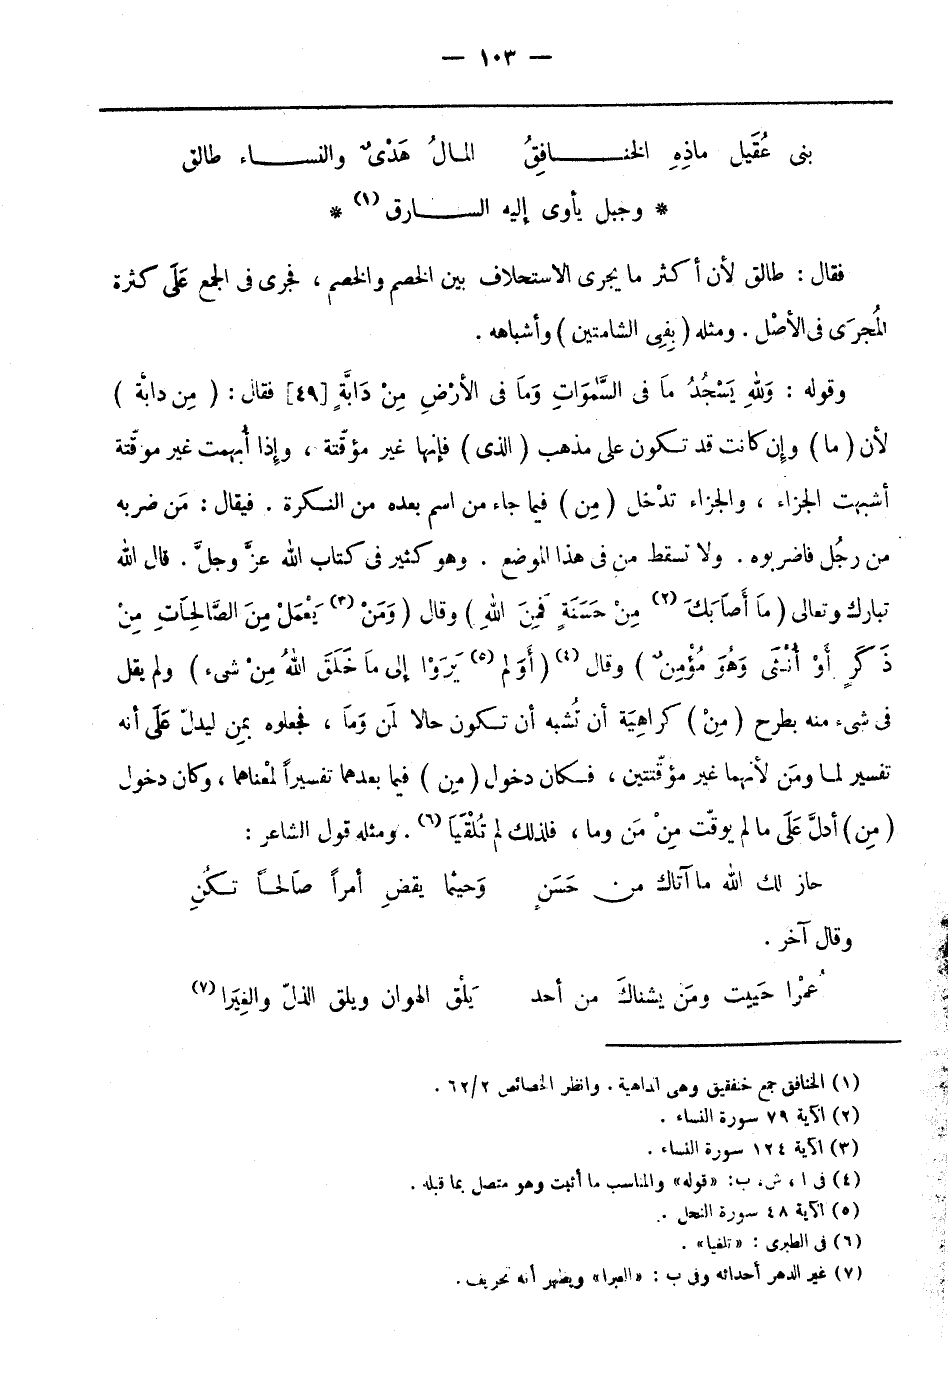 — ١٠٣ —
بنى عُقَيل ماذِهِ الخنـافِقُ المـالُ هَدْىٌ والنسـاء طالق
* وجبل يأوى إليه السـارق (١) *
فقال : طالق لأن أكثر ما يجرى الاستحلاف بين الخصم والخصم ، فجرى فى الجمع عَلَى كثرة
المُجرَى فى الأصْل . ومثله ( بِفِى الشامتين ) وأشباهه .
وقوله : وَلِلهِ يَسْجُدُ مَا فى السَّمٰوَاتِ وَمَا فى الأرْضِ مِنْ دَابَّةٍ [٤٩] فقال : ( مِن دابَّة )
لأن ( ما ) وإن كانت قد تكون على مذهب ( الذى ) فإنها غير مؤقّتة ، وإذا أُبهمت غير موقّتة
أشبهت الجزاء ، والجزاء تدْخل ( مِن ) فيما جاء من اسم بعده من النكرة . فيقال : مَن ضربه
من رجُل فاضربوه . ولا تسقط من فى هذا الموضع . وهو كثير فى كتاب الله عزَّ وجلَّ . قال الله
تبارك وتعالى ( مَا أَصَابَكَ (٢) مِنْ حَسَنَةٍ فَمِنَ اللهِ ) وقال ( وَمَنْ (٣) يَعْمَلْ مِنَ الصَّالِحَاتِ مِنْ
ذَكَرٍ أَوْ أُنْثَى وَهُوَ مُؤْمِنٌ ) وقال (٤) ( أَوَلم (٥) يَرَوْا إلى مَا خَلَقَ اللهُ مِنْ شىء ) ولم يقل
فى شىء منه بطرح ( مِنْ ) كراهِيَة أن تُشبه أن تكون حالا لمَن وَمَا ، فجعلوه بمِن ليدلّ عَلَى أنه
تفسير لمـا ومَن لأنهما غير مؤقّتتين ، فـكان دخول ( مِن ) فيما بعدهما تفسيراً لمعْناهما ، وكان دخول
( مِن ) أدلَّ عَلَى ما لم يوقّت مِنْ مَن وما ، فلذلك لم تُلْقَيَا (٦) . ومثله قول الشاعر :
حاز لك الله ما آتاك من حَسَنٍ وَحيثما يقضِ أمراً صَالحـاً تـكُنِ
وقال آخر .
عمْرًا حَيِيت ومَن يشناكَ من أحد يَلْق الهوان ويلق الذلّ والغِيَرا (٧)
(١) الخنافق جمع خنفقيق وهى الداهية . وانظر الخصائص ٦٢/٢ .
(٢) الآية ٧٩ سورة النساء .
(٣) الآية ١٢٤ سورة النساء .
(٤) فى ا ، ش، ب: «قوله» والمناسب ما أثبت وهو متصل بما قبله .
(٥) الآية ٤٨ سورة النحل .
(٦) فى الطبرى : «تلغيا» .
(٧) غير الدهر أحداثه وفى ب : «العبرا» ويظهر أنه تحريف .